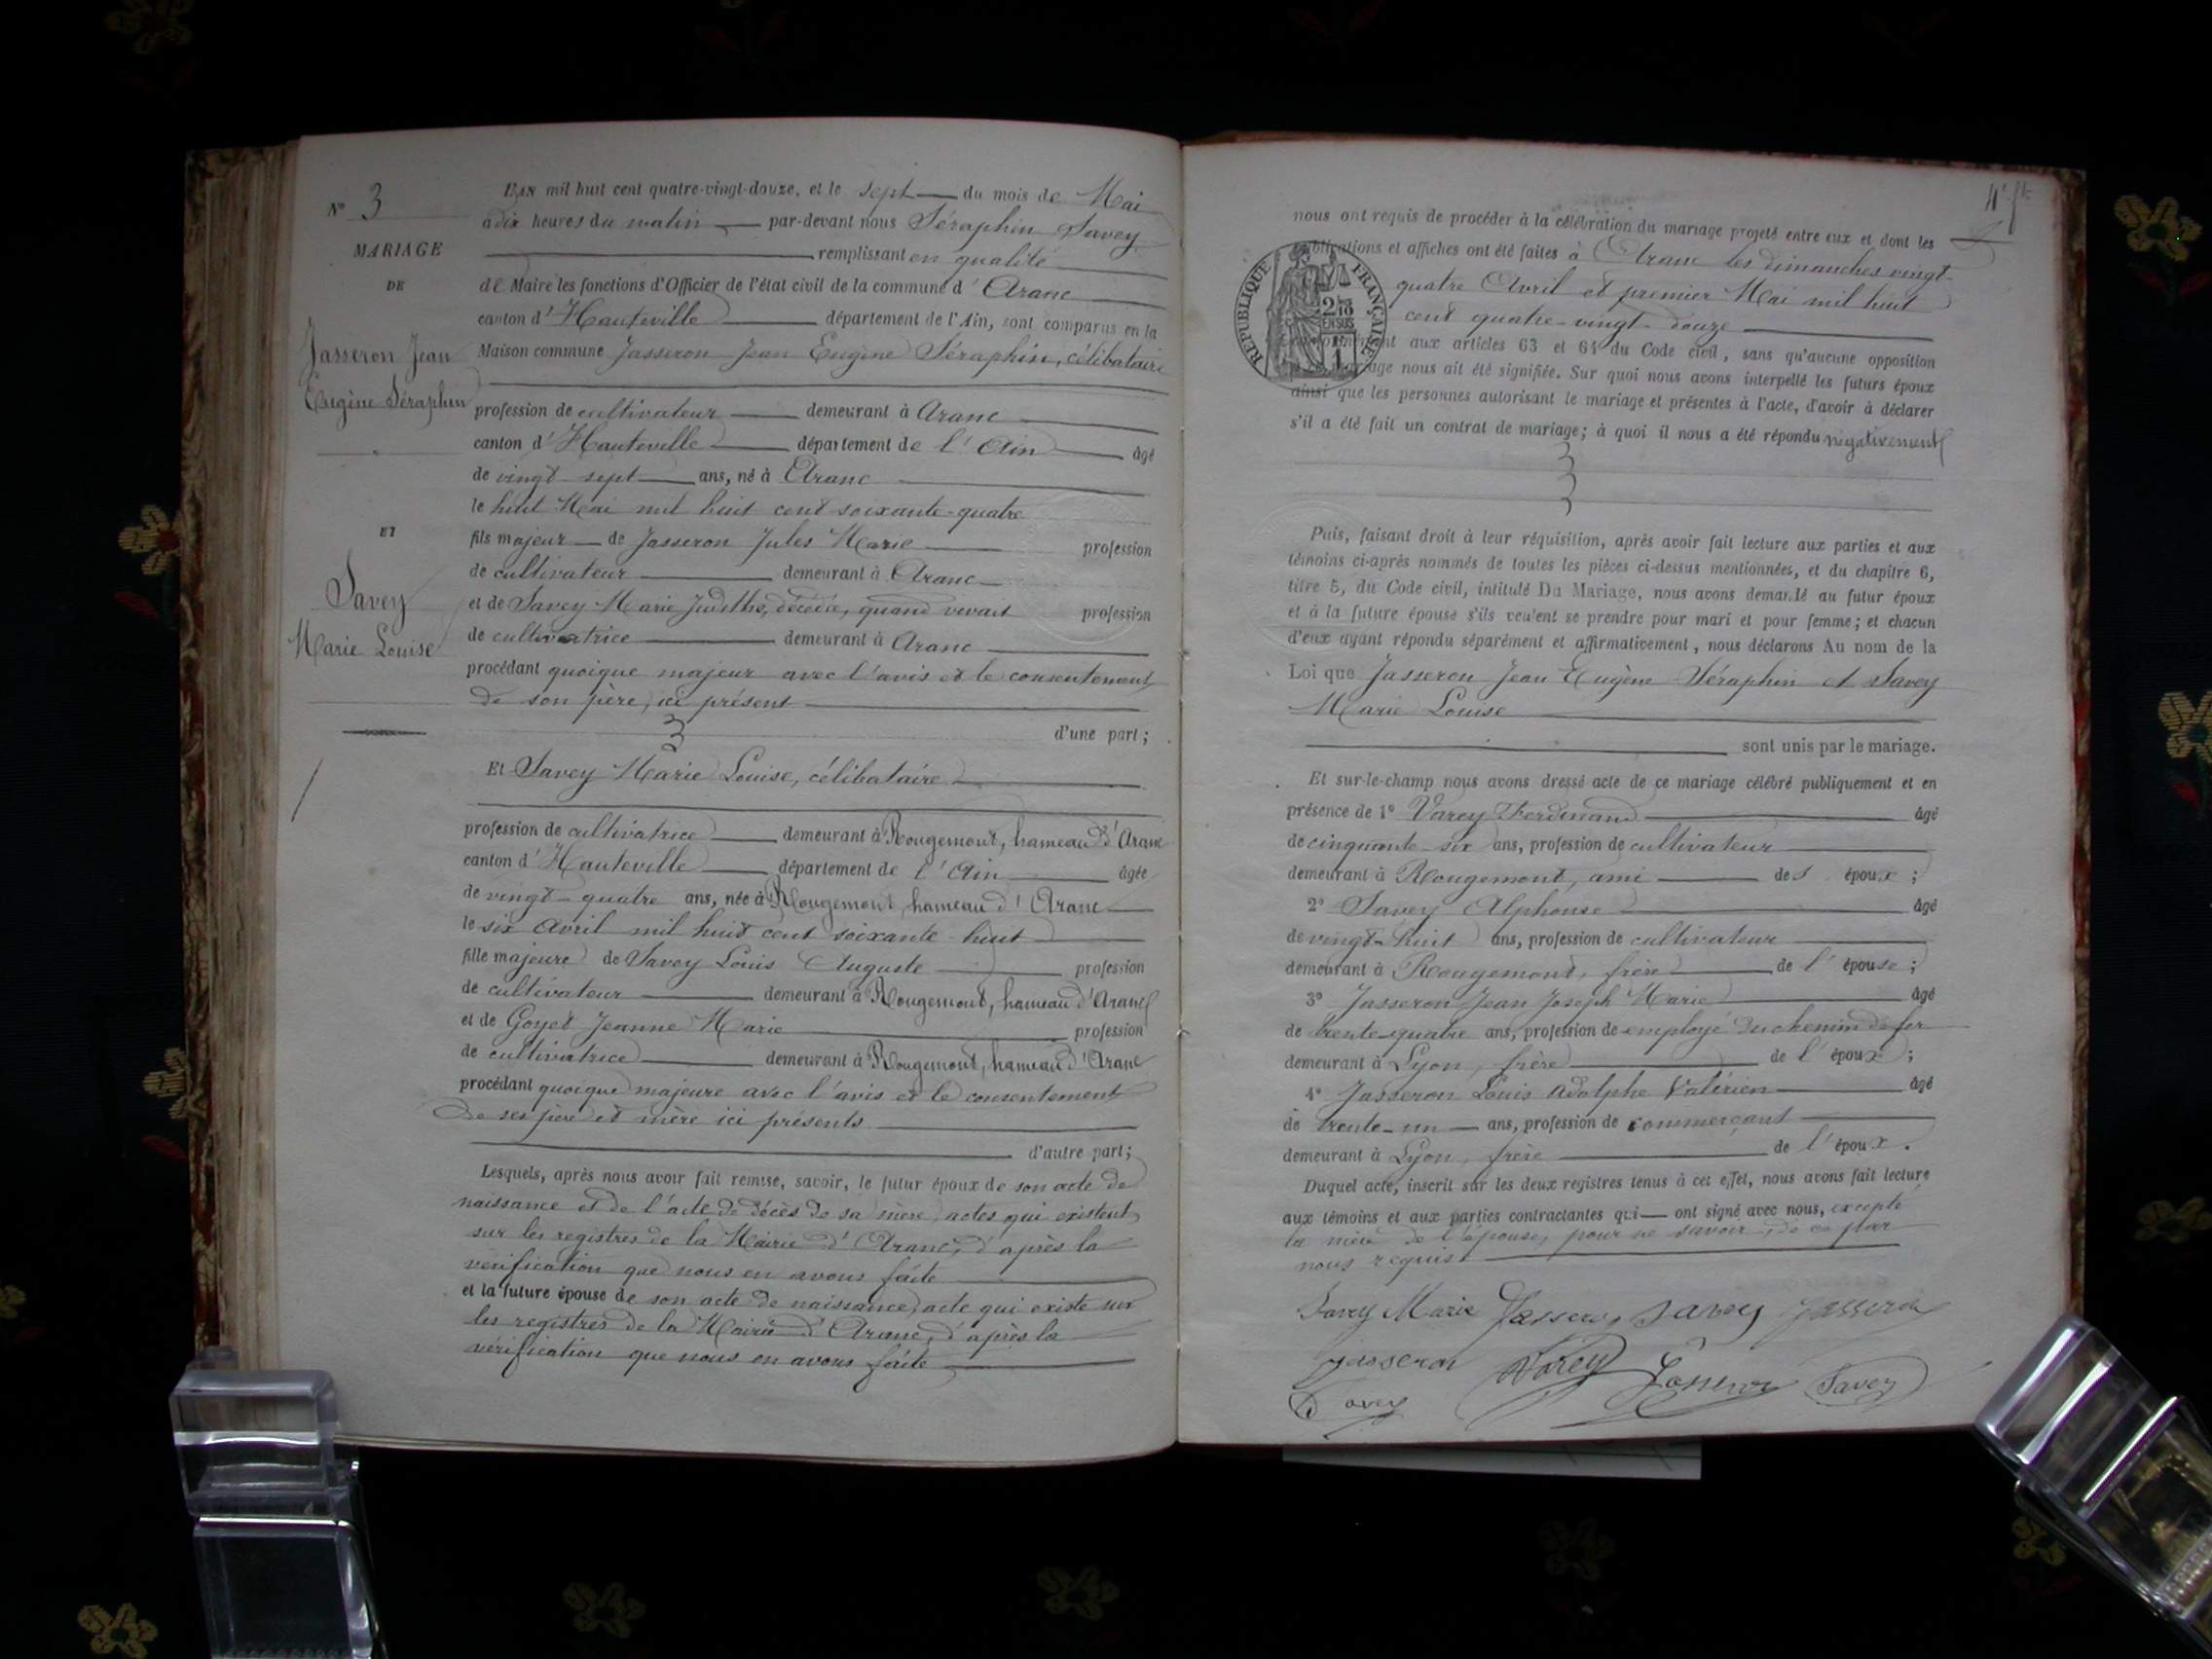 N° 3
MARIAGE
DE
Jasseron Jean
Eugène Séraphin
ET
Savey
Marie Louise
L'AN mil huit cent quatre-vingt-douze, et le sept du mois de Mai
à dix heures du matin par-devant nous Séraphin Savey
remplissant en qualité
de Maire les fonctions d'Officier de l'état civil de la commune d'Aranc
canton d'Hauteville département de l'Ain, sont comparus en la
Maison commune Jasseron Jean Eugène Séraphin, célibataire
profession de cultivateur demeurant à Aranc
canton d'Hauteville département de l'Ain âgé
de vingt-sept ans, né à Aranc
le huit Mai mil huit cent soixante-quatre
fils majeur de Jasseron Jules Marie profession
de cultivateur demeurant à Aranc
et de Savey Marie Judithe, décédée, quand vivait profession
de cultivatrice demeurant à Aranc
procédant quoique majeur avec l'avis et le consentement
de son père, ici présent
d'une part;
Et Savey Marie Louise, célibataire
profession de cultivatrice demeurant à Rougemont, hameau d'Aranc
canton d'Hauteville département de l'Ain âgée
de vingt-quatre ans, née à Rougemont, hameau d'Aranc
le six Avril mil huit cent soixante-huit
fille majeure de Savey Louis Auguste profession
de cultivateur demeurant à Rougemont, hameau d'Aranc
et de Goyet Jeanne Marie profession
de cultivatrice demeurant à Rougemont, hameau d'Aranc
procédant quoique majeure avec l'avis et le consentement
de ses père et mère ici présents
d'autre part;
Lesquels, après nous avoir fait remise, savoir, le futur époux de son acte de
naissance et de l'acte de décès de sa mère, actes qui existent
sur les registres de la Mairie d'Aranc, d'après la
vérification que nous en avons faite
et la future épouse de son acte de naissance, acte qui existe sur
les registres de la Mairie d'Aranc, d'après la
vérification que nous en avons faite
nous ont requis de procéder à la célébration du mariage projeté entre eux et dont les
publications et affiches ont été faites à Aranc les dimanches vingt-
quatre Avril et premier Mai mil huit
cent quatre-vingt-douze
RÉPUBLIQUE FRANÇAISE
2/10 EN SUS
conformément aux articles 63 et 64 du Code civil, sans qu'aucune opposition
mariage nous ait été signifiée. Sur quoi nous avons interpellé les futurs époux
ainsi que les personnes autorisant le mariage et présentes à l'acte, d'avoir à déclarer
s'il a été fait un contrat de mariage; à quoi il nous a été répondu négativement
Puis, faisant droit à leur réquisition, après avoir fait lecture aux parties et aux
témoins ci-après nommés de toutes les pièces ci-dessus mentionnées, et du chapitre 6,
titre 5, du Code civil, intitulé Du Mariage, nous avons demandé au futur époux
et à la future épouse s'ils veulent se prendre pour mari et pour femme; et chacun
d'eux ayant répondu séparément et affirmativement, nous déclarons Au nom de la
Loi que Jasseron Jean Eugène Séraphin et Savey
Marie Louise
sont unis par le mariage.
Et sur-le-champ nous avons dressé acte de ce mariage célébré publiquement et en
présence de 1° Varey Ferdinand âgé
de cinquante-six ans, profession de cultivateur
demeurant à Rougemont, ami des époux;
2° Savey Alphonse âgé
de vingt-huit ans, profession de cultivateur
demeurant à Rougemont, frère de l'épouse;
3° Jasseron Jean Joseph Marie âgé
de trente-quatre ans, profession de employé du chemin de fer
demeurant à Lyon, frère de l'époux;
4° Jasseron Louis Adolphe Valérien âgé
de trente-un ans, profession de commerçant
demeurant à Lyon, frère de l'époux.
Duquel acte, inscrit sur les deux registres tenus à cet effet, nous avons fait lecture
aux témoins et aux parties contractantes qui ont signé avec nous, excepté
la mère de l'épouse, pour ne savoir, de ce par
nous requis
Savey Marie Jasseron Savey Jasseron
Jasseron Varey Jasseron Savey
Savey